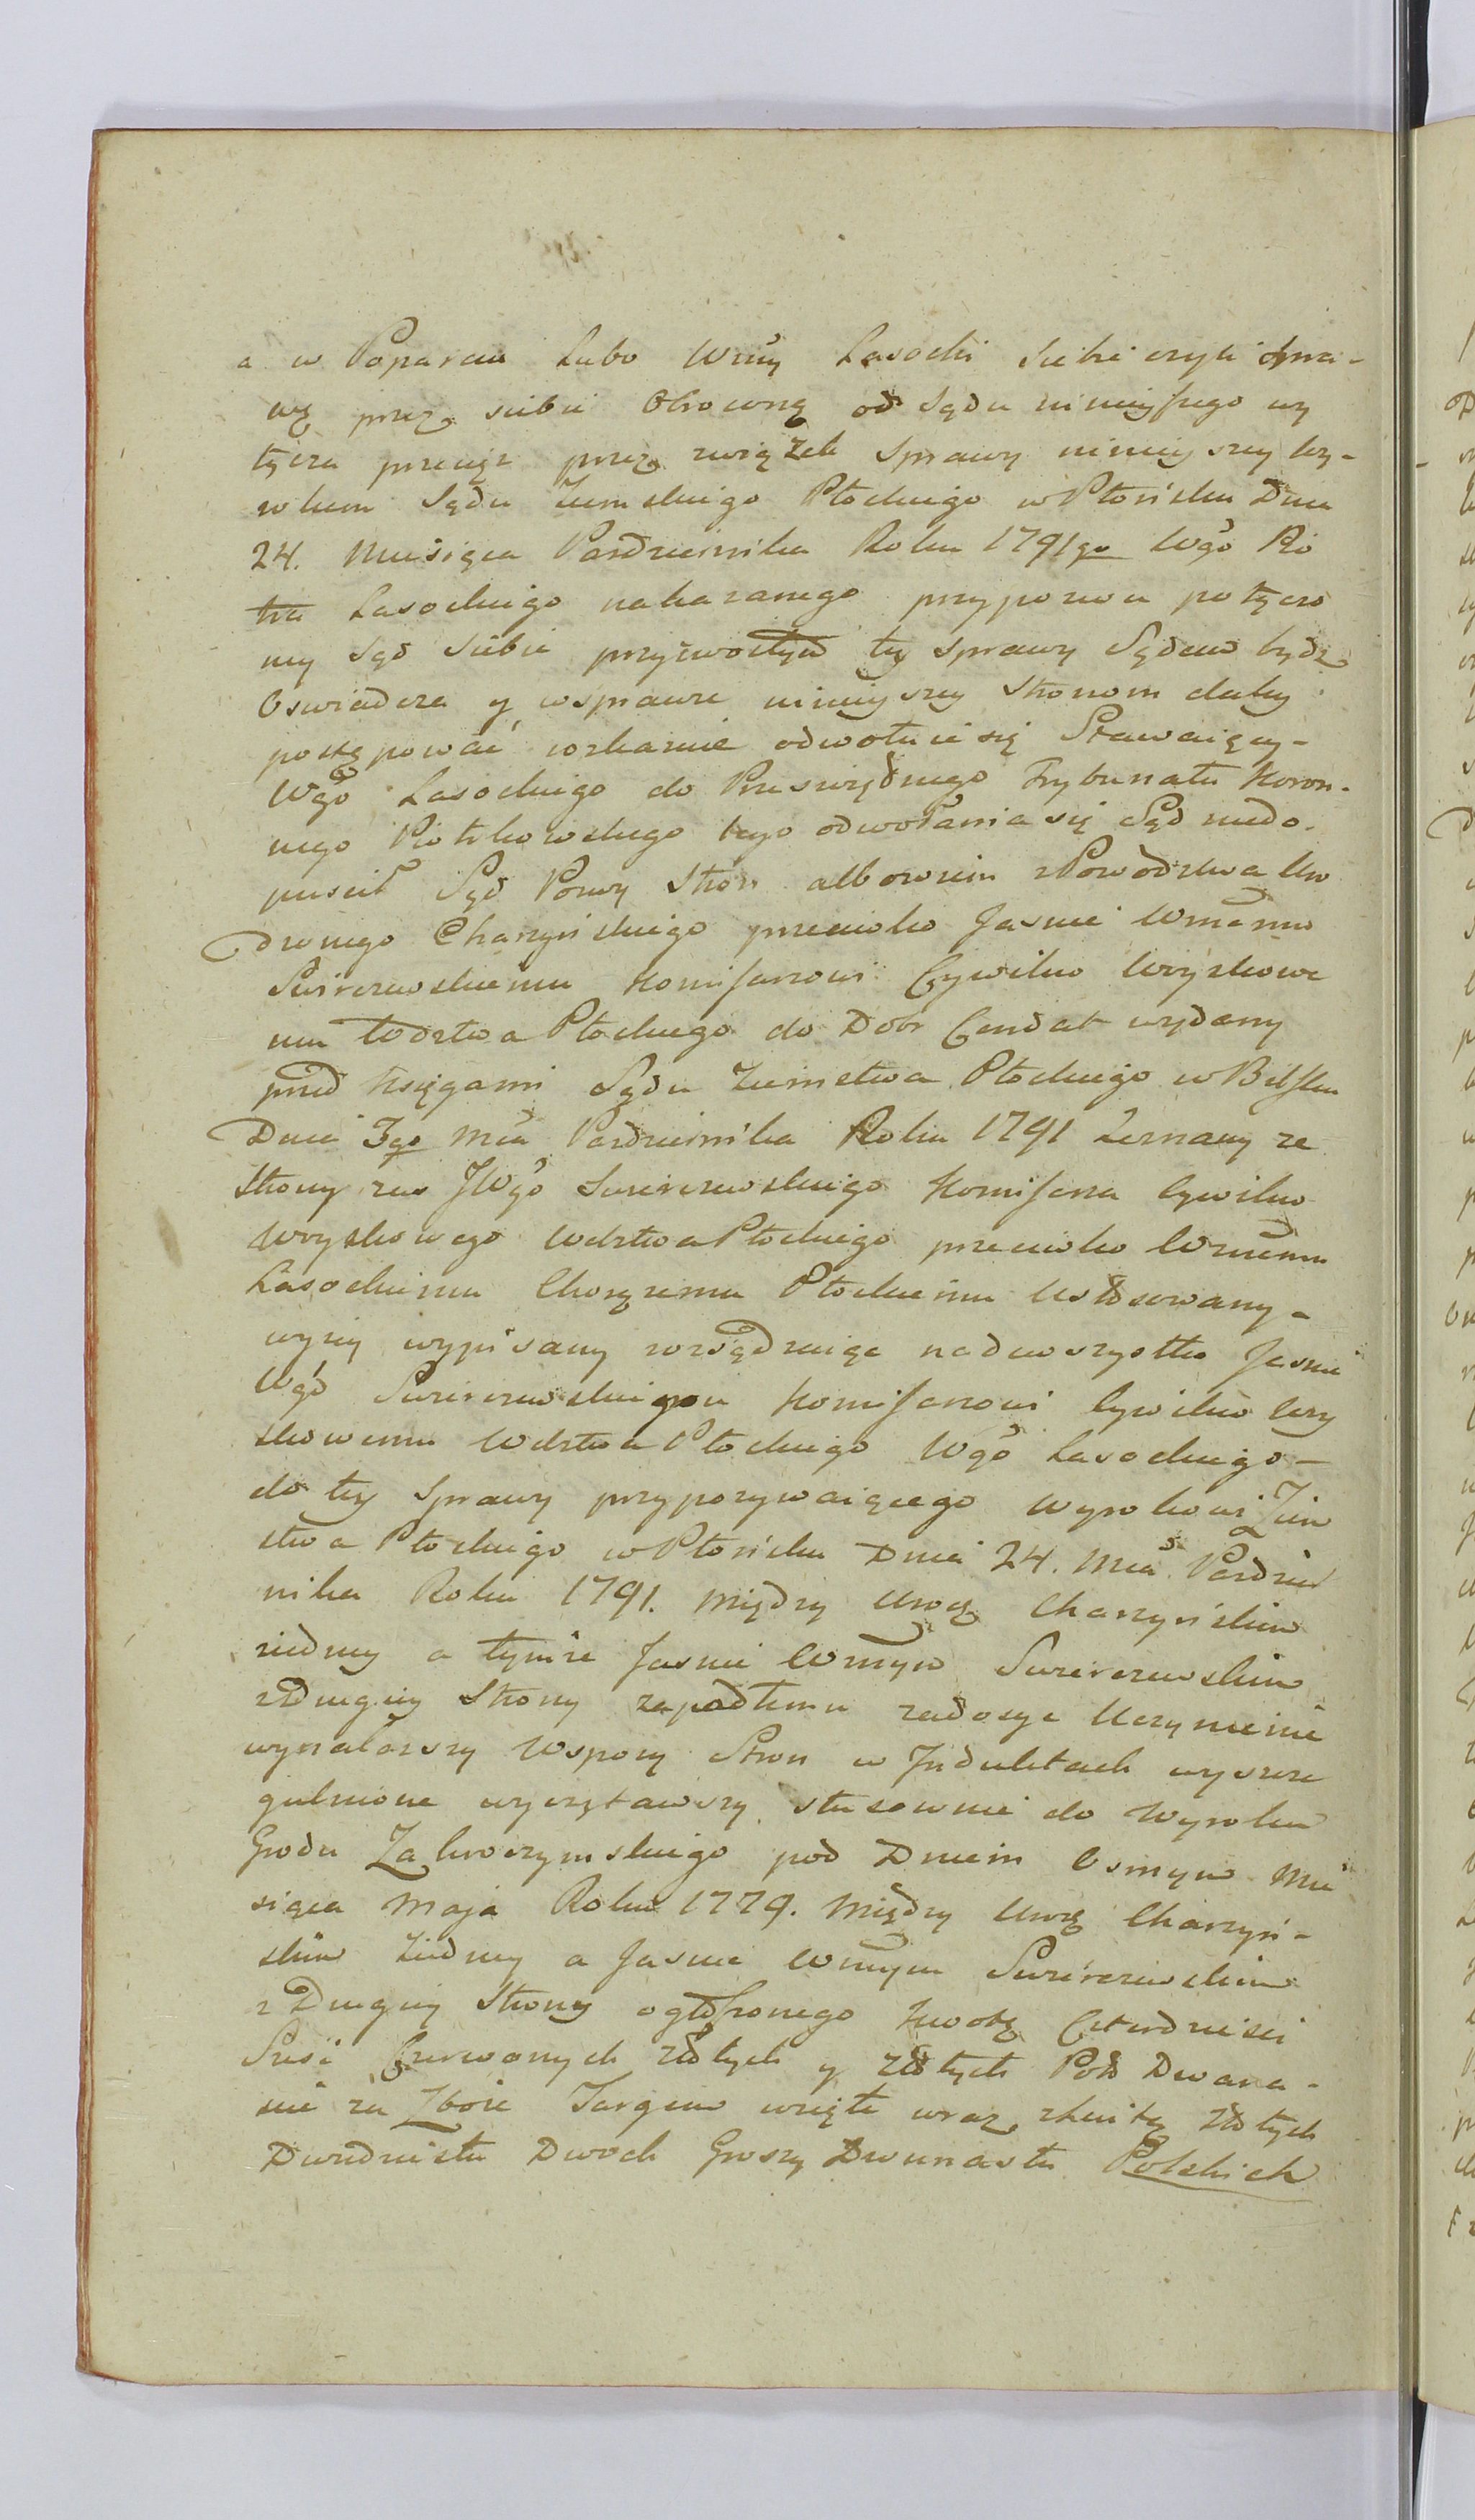 a w Poparciu Lubo Wny Lasocki siebie czyli spra-
wę przez siebie Obrocną od Sądu ninieyszego wy
łącza przecięż przez związek sprawy ninieyszey wy-
rokiem Sądu Ziemskiego Płockiego w Płońsku Dnia
24. Miesiąca Pazdziernika Roku 1791go Wgo Pio
tra Lasockiego nakazanego przypozwu połączo
ny Sąd siebie przyzwoitym tey sprawy Sądem bydz
Oswiadcza y w sprawie ninieyszey stronom daley
postępować wskazuie odwołuie się Stawaiący-
Wgo Lasockiego do Przeswiętnego Trybunału Koron-
nego Piotrkowskiego tego odwołania się Sąd niedo-
puscił Sąd Pozwy Stron albowiem z Powodztwa Uro
dzonego Charzyńskiego przeciwko Jasnie Wmu
Swierczewskiemu Komissarzowi Cywilno Woyskowe
mu Wdztwa Płockiego do Dobr Cendat wydany
przed Księgami Sądu Ziemstwa Płockiego w Bielsku
Dnia 3go Mca Pazdziernika Roku 1791 Zeznany ze
Strony zas JWgo Swierczewskiego Komissarza Cywilno
Woyskowego Wdztwa Płockiego przeciwko Wmu
Lasockiemu Chorązemu Płockiemu Ustosowany-
wyzey wypisany rozsądzaiąc nadewszystko Jasnie
Wgo Swierczewskiemu Komissarzowi Cywilno Woy
skowemu Wdztwa Płockiego Wgo Lasockiego-
do tey Sprawy przypozywaiącego Wyrokowi Ziem
stwa Płockiego w Płońsku Dnia 24. Mca Pazdzier
nika Roku 1791. między Urodz Charzyńskim
ziedney a tymże Jasnie Wmym Swierczewskim
z Drugiey Strony zapadłemu zadosyc Uczynienie
wynalazszy Wspory Stron w Induktach wyszcze
gulnione wyczytawszy stosownie do Wyroku
Grodu Zakroczymskiego pod Dniem Osmym Mie
siąca Maja Roku 1779. między Urodz Charzyń-
skim Ziedney a Jasnie Wmym Swierczewskim
z Drugiey Strony ogłoszonego kwotę Czterdziesci
Szesc Czerwonych złłtych y złłtych Poł Dwana-
scie za Zboze Targiem wzięte wraz zkwitą złłtych
Dwudziestu Dwoch Groszy Dwunastu Polskich